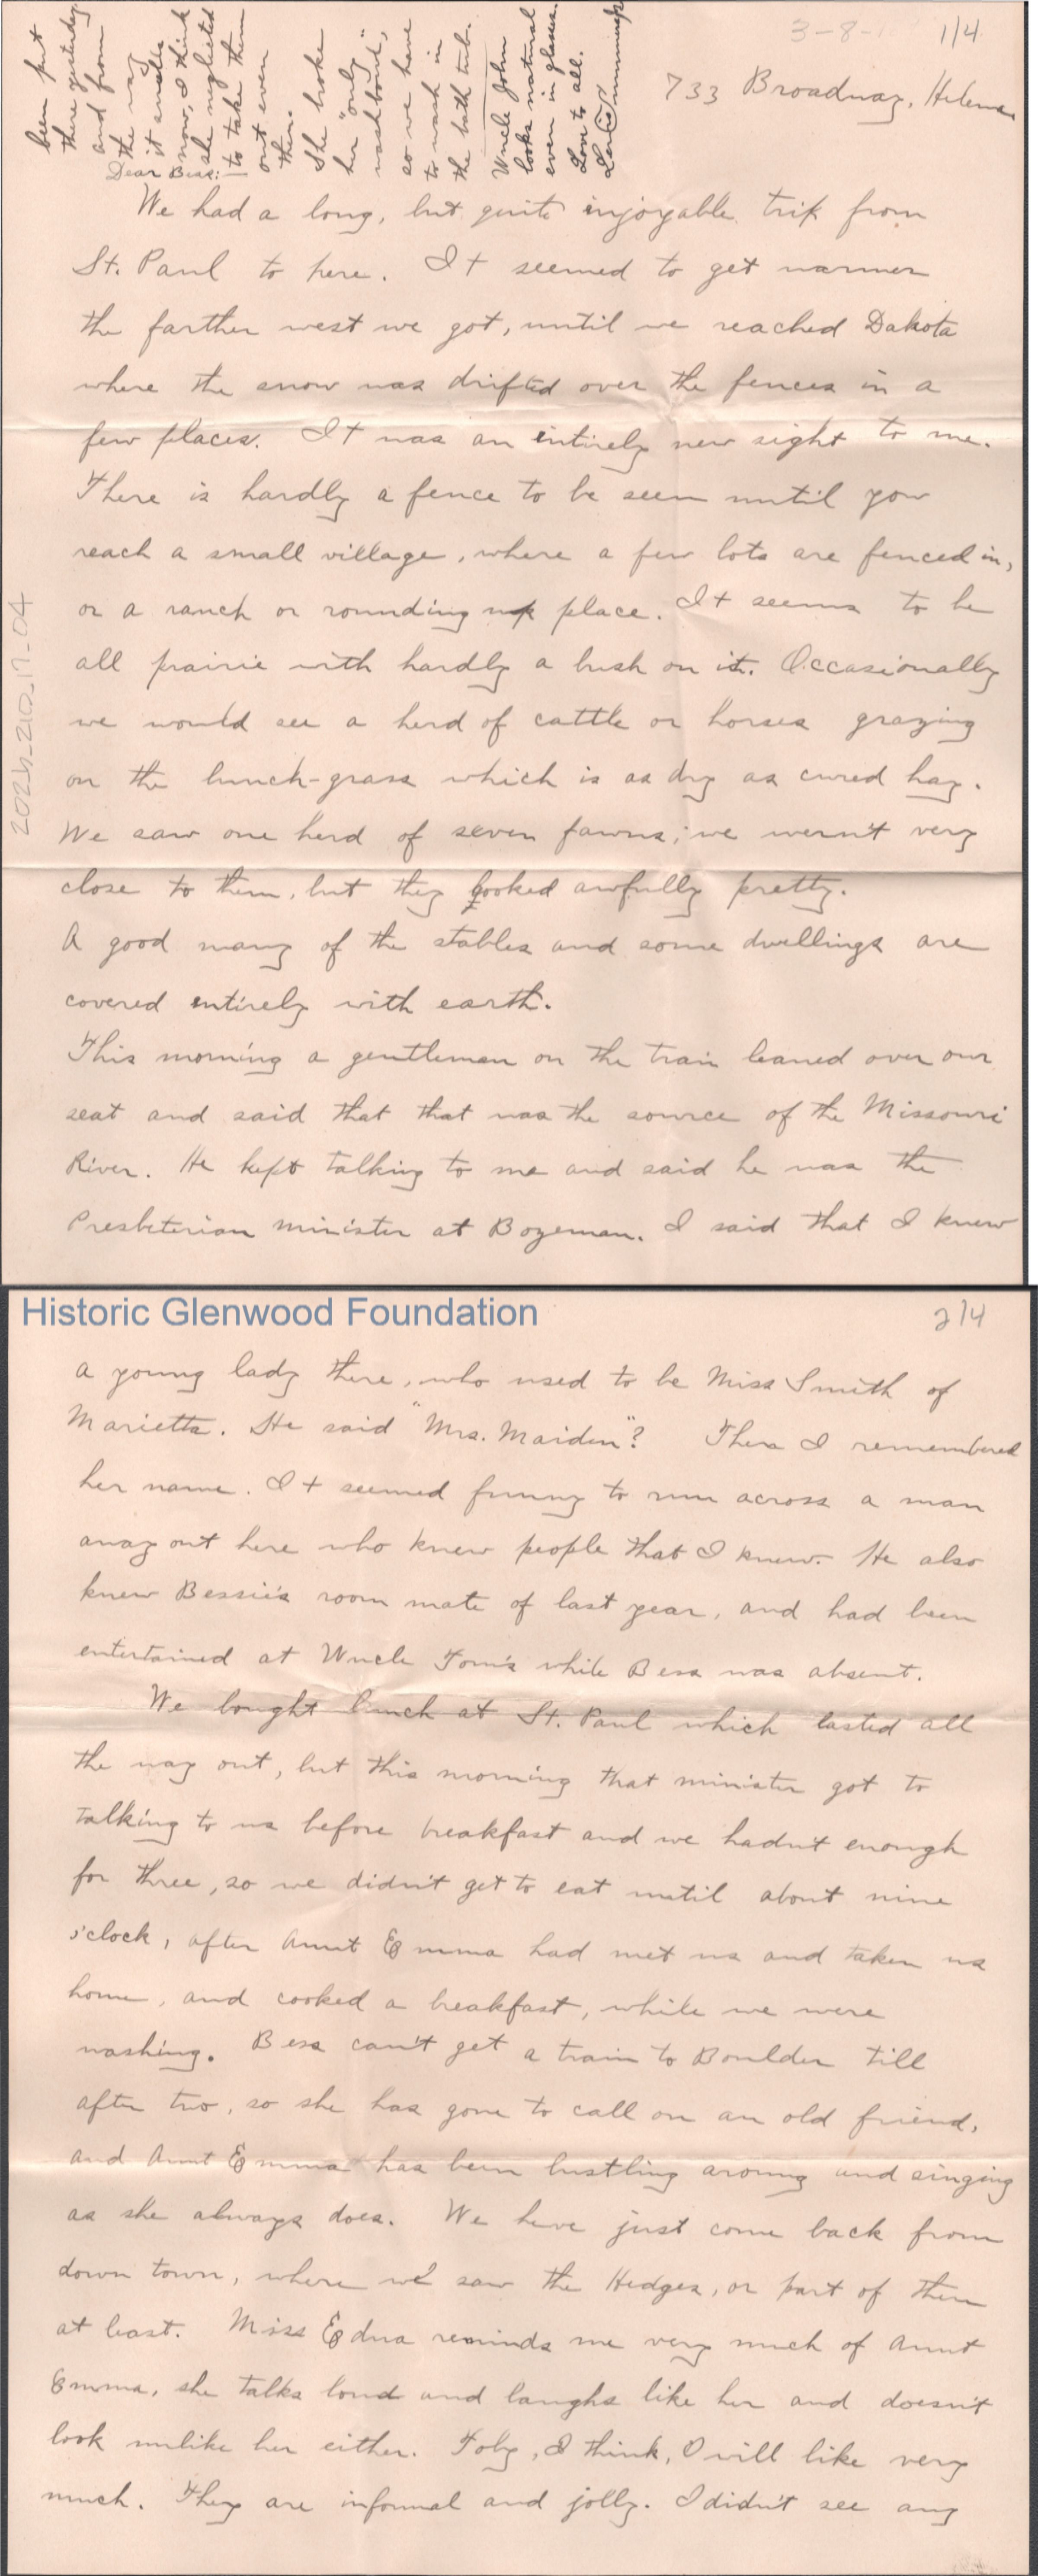 3-8-1
1/4
733 Broadway, Helena
been put
there yesterday
and from
the way
it smells
now, I think
she neglected
to take them
out even
then.
She broke
her "only
washbowl",
so we have
to wash in
the bath tub.
Uncle John
looks natural
even in glasses.
Love to all.
Dear Bess:—
We had a long, but quite injoyable trip from
St. Paul to here. It seemed to get warmer
the farther west we got, until we reached Dakota
where the snow was drifted over the fences in a
few places. It was an entirely new sight to me.
There is hardly a fence to be seen until you
reach a small village, where a few lots are fenced in,
or a ranch or rounding up place. It seems to be
all prairie with hardly a bush on it. Occasionally
we would see a herd of cattle or horses grazing
on the bunch-grass which is as dry as cured hay.
We saw one herd of seven fawns; we wern't very
close to them, but they looked awfully pretty.
A good many of the stables and some dwellings are
covered entirely with earth.
This morning a gentleman on the train leaned over our
seat and said that that was the source of the Missouri
River. He kept talking to me and said he was the
Presbeterian minister at Bozeman. I said that I knew
2024.20.17.04
Historic Glenwood Foundation
2/4
a young lady there, who used to be Miss Smith of
Marietta. He said "Mrs. Maiden"? Then I remembered
her name. It seemed funny to run across a man
away out here who knew people that I knew. He also
knew Bessie's room mate of last year, and had been
entertained at Uncle Tom's while Bess was absent.
We bought lunch at St. Paul which lasted all
the way out, but this morning that minister got to
talking to us before breakfast and we hadn't enough
for three, so we didn't get to eat until about nine
o'clock, after Aunt Emma had met us and taken us
home, and cooked a breakfast, while we were
washing. Bess can't get a train to Boulder till
after two, so she has gone to call on an old friend,
and Aunt Emma has been bustling aroung and singing
as she always does. We have just come back from
down town, where we saw the Hedges, or part of them
at least. Miss Edna reminds me very much of Aunt
Emma, she talks loud and laughs like her and doesn't
look unlike her either. Toby, I think, I will like very
much. They are informal and jolly. I didn't see any